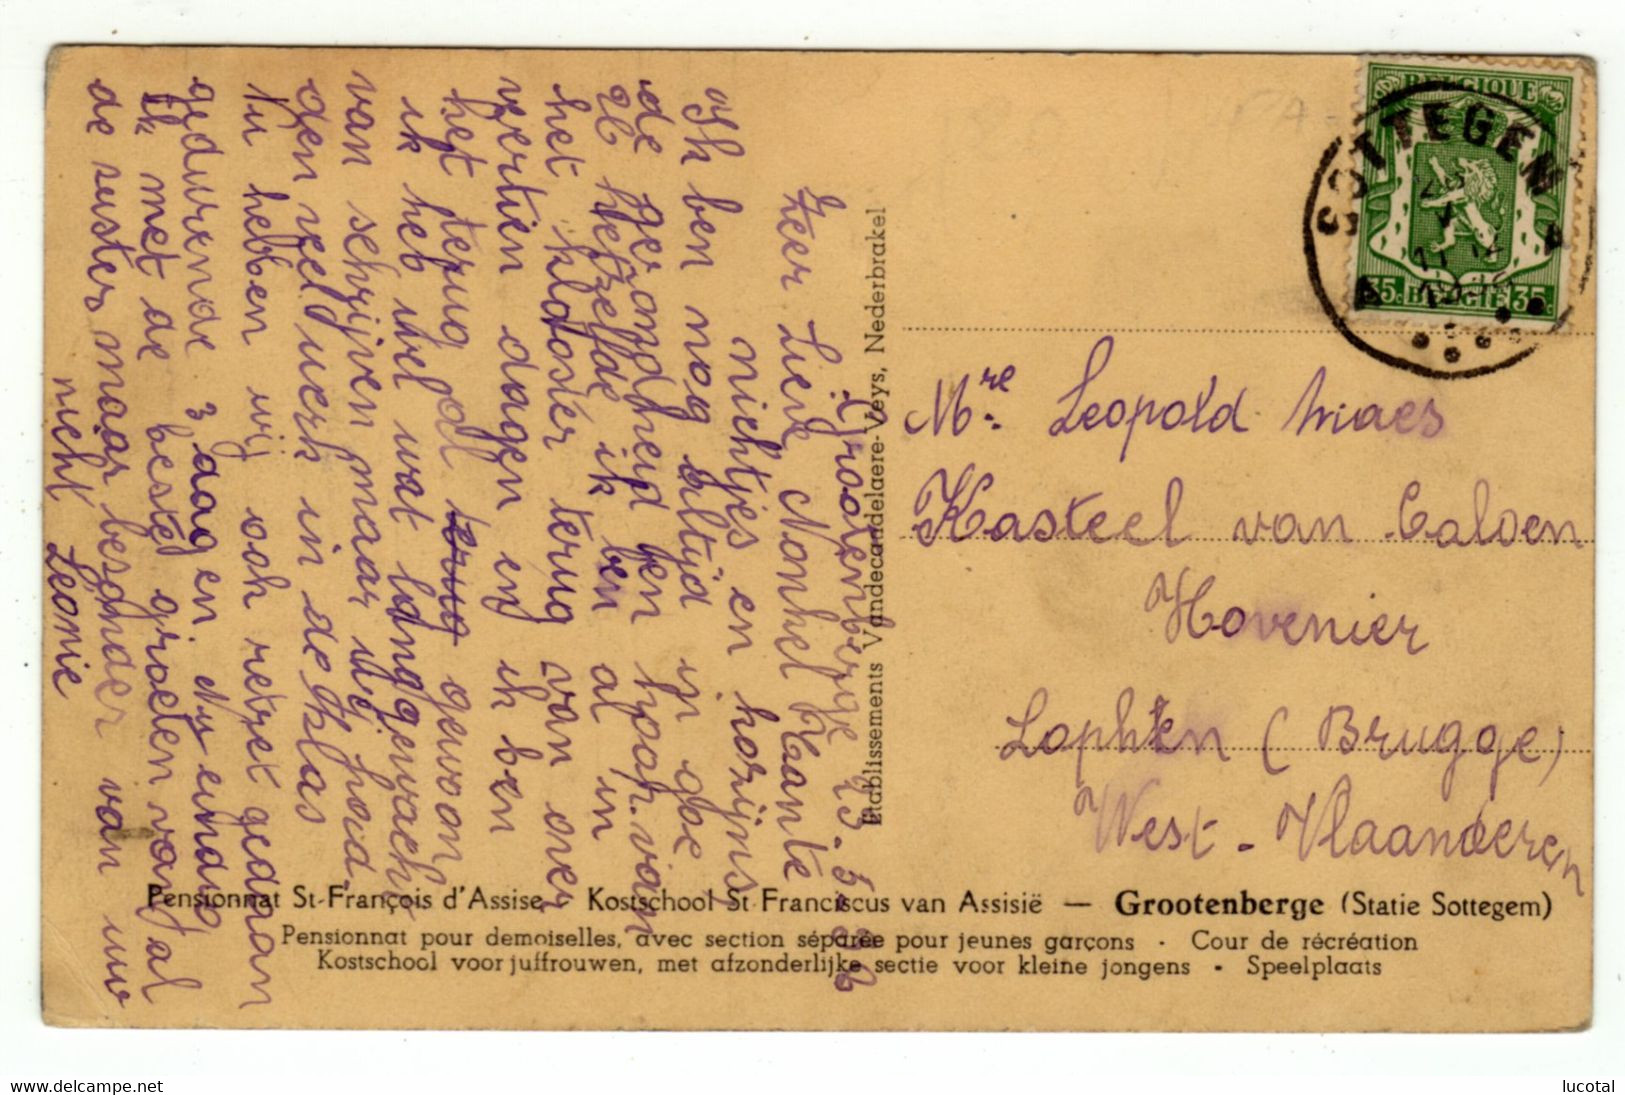 Grootenberge 23-5-
Zeer Lieve Nonkel Tante
nichtjes en kozijns
Ik ben nog altijd in goe
de gezondheid en hoop van
het zelfde ik ben al in
het klooster terug van over
veertien dagen en ik ben
het terug al terug gewoon
ik heb wel wat lang gewacht
van schrijven maar wij
zen veel werk in de klas
nu hebben wij ook retret gedaan
gedurende 3 daag en. Nu eindig
ik met de beste groeten van al
de zusters maar besonder van uw
nicht Leonie
Etablissements Vandecandelaere-Veys, Nederbrakel
BELGIQUE
35c BELGIE 35c
SOTTEGEM
Mre. Leopold Maes
Kasteel van Caloen
Hovenier
Lophem (Brugge)
West-Vlaanderen
Pensionnat St-François d'Assise - Kostschool St Franciscus van Assisië — Grootenberge (Statie Sottegem)
Pensionnat pour demoiselles, avec section séparée pour jeunes garçons - Cour de récréation
Kostschool voor juffrouwen, met afzonderlijke sectie voor kleine jongens - Speelplaats
www.delcampe.net
lucotal